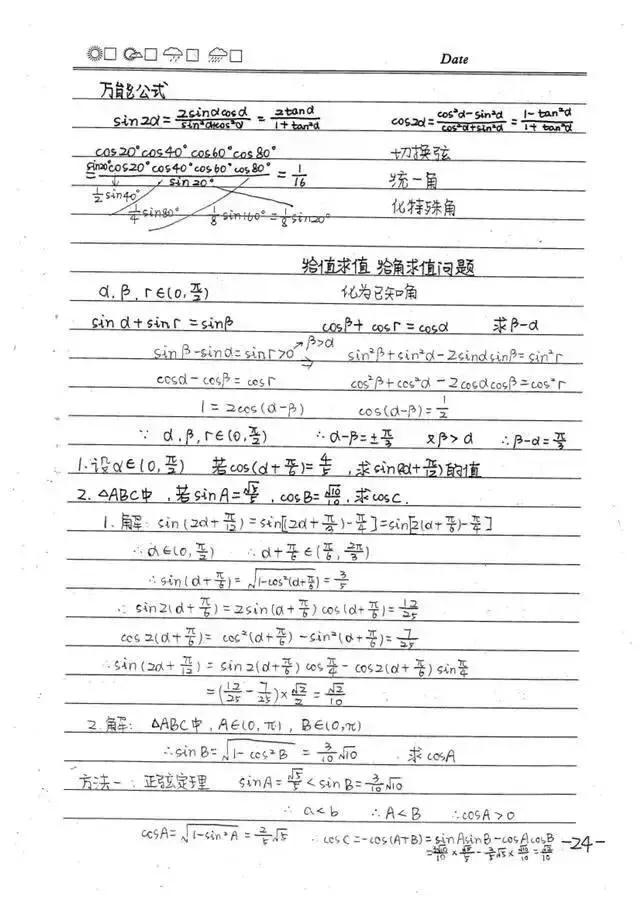 Date
万能公式
sin2α = 2sinαcosα/sin²αcos²α = 2tanα/1+tan²α  cos2α = cos²α-sin²α/cos²α+sin²α = 1-tan²α/1+tan²α
cos20°cos40°cos60°cos80°  切换弦
= sin20°cos20°cos40°cos60°cos80°/sin20° = 1/16  统一角
1/2 sin40°  化特殊角
1/4 sin80°  1/8 sin160° = 1/8 sin20°
给值求值 给角求值问题
α, β, r∈(0, π/2)  化为已知角
sinα + sinr = sinβ  cosβ + cosr = cosα  求β-α
sinβ - sinα = sinr > 0 → β>α  sin²β + sin²α - 2sinαsinβ = sin²r
cosα - cosβ = cosr  cos²β + cos²α - 2cosαcosβ = cos²r
1 = 2cos(α-β)  cos(α-β) = 1/2
∵ α, β, r∈(0, π/2)  ∴ α-β = ±π/3  又β > α  ∴ β-α = π/3
1. 设α∈(0, π/2) 若cos(α + π/6) = 4/5, 求sin(2α + π/12)的值
2. △ABC中, 若sinA = √5/5, cosB = √10/10, 求cosC.
1. 解: sin(2α + π/12) = sin[(2α + π/3) - π/4] = sin[2(α + π/6) - π/4]
∵ α∈(0, π/2)  ∴ α + π/6 ∈ (π/6, 2π/3)
∴ sin(α + π/6) = √1-cos²(α+π/6) = 3/5
∴ sin2(α + π/6) = 2sin(α + π/6) cos(α + π/6) = 12/25
cos2(α + π/6) = cos²(α + π/6) - sin²(α + π/6) = 7/25
∴ sin(2α + π/12) = sin2(α + π/6) cosπ/4 - cos2(α + π/6) sinπ/4
= (12/25 - 7/25) × √2/2 = √2/10
2. 解: △ABC中, A∈(0, π), B∈(0, π)
∴ sinB = √1-cos²B = 3/10 √10 . 求cosA
方法一: 正弦定理 sinA = √5/5 < sinB = 3/10 √10
∴ a<b  ∴ A<B  ∴ cosA>0
cosA = √1-sin²A = 2/5 √5  ∴ cosC = -cos(A+B) = sinAsinB - cosAcosB
-24-